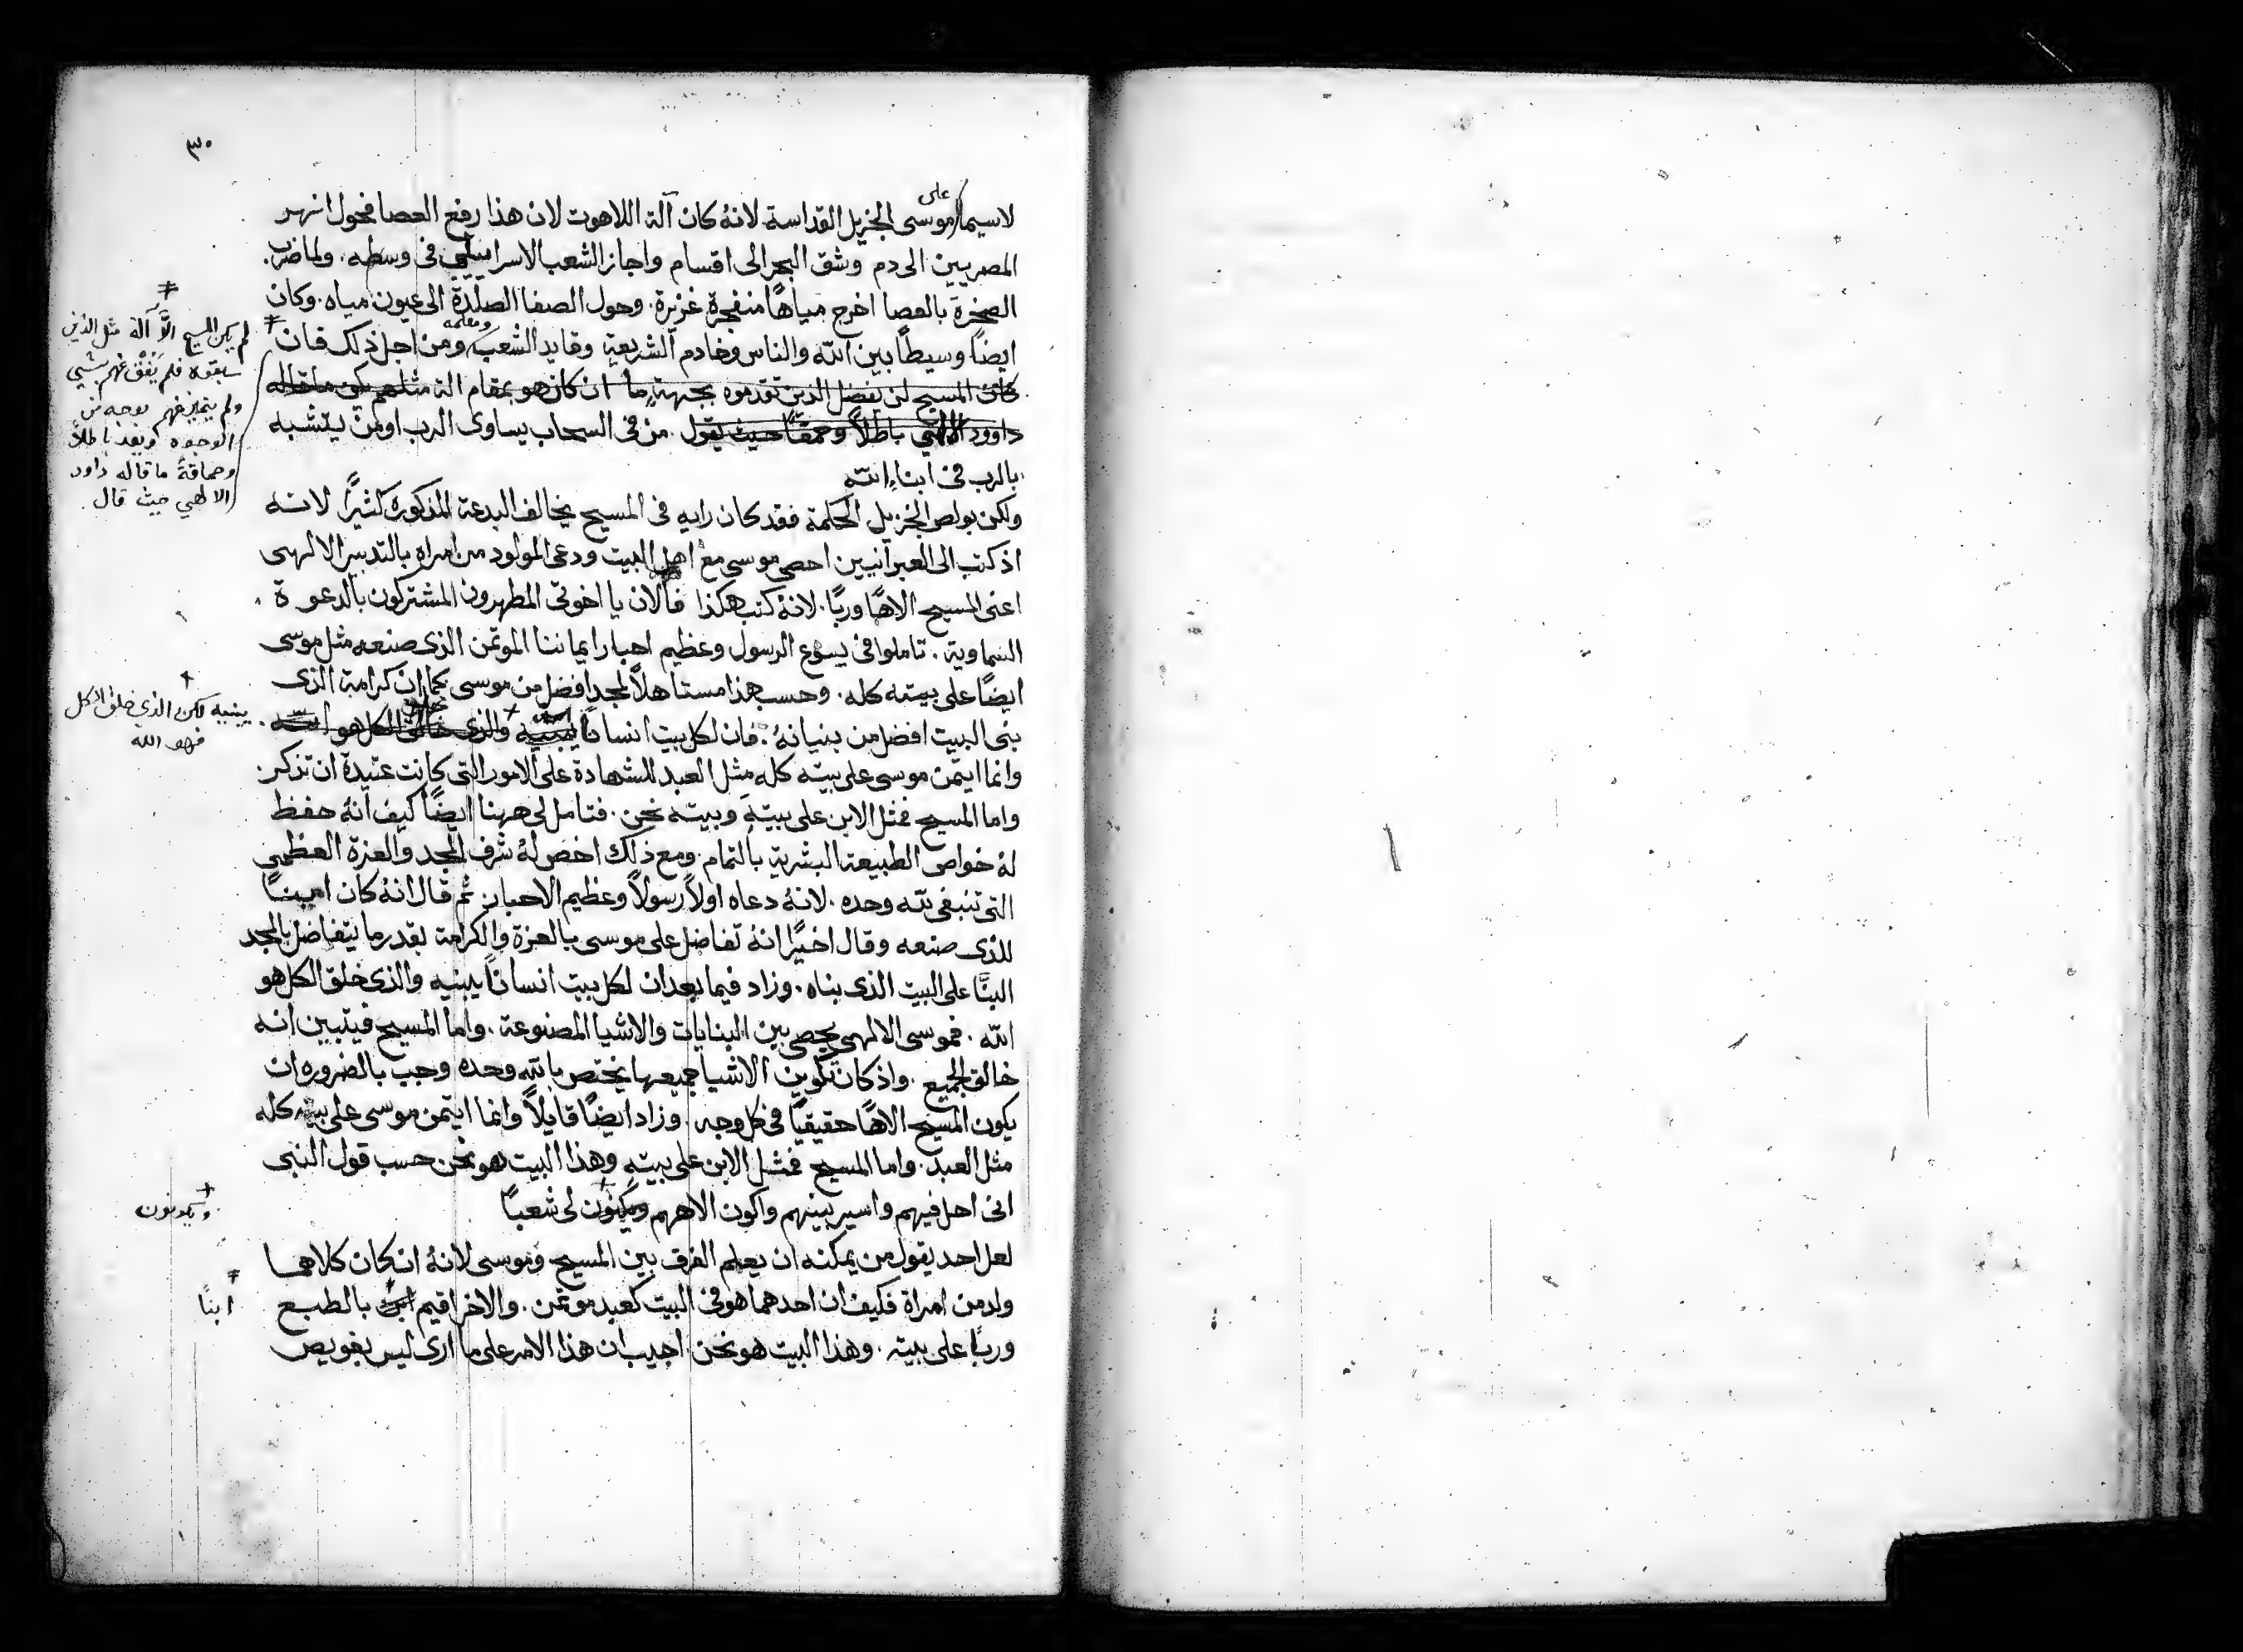 ٣٠
على
لاسيما موسى الجزيل القداسة لانهُ كان آلة اللاهوت لان هذا رفع العصا فحول انهر
المصريين الى دم وشق البحر الى اقسام واجاز الشعب الاسراييلي في وسطه. ولما ضرب
الصخرة بالعصا اخرج مياهًا منفجرة غزيرة. وحول الصفا الصلدة الى عيون مياه. وكان
ومعلمه
ايضًا وسيطًا بين الله والناس وخادم الشريعة وقايد الشعب ومن اجل ذلك فان
كان المسيح لن يفضل الذين تقدموه بجهةٍ ما ان كان هو بمقام الة مثلهم يكن ما قاله
داوود الالهي باطلاً وحمقًا حيث يقول. من في السحاب يساوى الرب او من يتشبه
بالرب في ابناء الله
ولكن بولص الجزيل الحكمة فقد كان رايه في المسيح يخالف البدعة المذكورة كثيرًا لانه
اذ كتب الى العبرانيين احصى موسى مع اهل البيت ودعى المولود من امراه بالتدبير الالهى
اعنى المسيح الاهًا وربًا. لانهُ كتب هكذا فالان يا اخوتى المطهرون المشتركون بالدعوة
السماوية. تاملوا في يسوع الرسول وعظيم احبار ايماننا الموتمن الذى صنعه مثل موسى
ايضًا على بيته كله. وحسب هذا مستاهلاً لمجد افضل من موسى كما ان كرامة الذى
بنى البيت افضل من بنيانهُ. فان لكل بيت انسانًا يبنيه والذى خالق الكل هو الله.
وانما ايتمن موسى على بيته كله مثل العبد للشهادة على الامور التى كانت عتيدة ان تذكر.
واما المسيح فمثل الابن على بيتهِ وبيته نحن. فتامل لى ههنا ايضًا كيف انهُ حفظ
لهُ خواص الطبيعة البشرية بالتمام. ومع ذلك اخص لهُ شرف المجد والعزة العظمى
التى تنبغى لله وحده. لانهُ دعاه اولاً رسولاً وعظيم الاحبار ثم قال انهُ كان امينًا
للذى صنعه وقال اخيرًا انهُ تفاضل على موسى بالعزة والكرامة بقدر ما يتفاضل بالمجد
البنَّا على البيت الذى بناه. وزاد فيما بعد ان لكل بيت انسانًا يبنيه والذى خلق الكل هو
الله. فموسى الالهى يحصى بين البنايات والاشيا المصنوعة. واما المسيح فيتبين انه
خالق الجميع. واذ كان تكوين الاشيا جميعها يختص بالله وحده وجب بالضروره ان
يكون المسيح الاهًا حقيقيًا في كل وجه. وزاد ايضًا قايلاً وانما ايتمن موسى على بيته كله
مثل العبد. واما المسيح فمثل الابن على بيتهِ وهذا البيت هو نحن حسب قول النبى
انى احل فيهم واسير بينهم واكون الاههم ويكونون لى شعبًا
لعل احد يقول من يمكنه ان يعلم الفرق بين المسيح وموسى لانهُ ان كان كلاهما
ولد من امراة فكيف ان احدهما هو في البيت كعبد موتمن. والاخر اقيم بالطبع
وربًا على بيته. وهذا البيت هو نحن. اجيب ان هذا الامر على ما ارى ليس بعويص
لم يكن المسيح الاَّ آلة مثل الذين
سبقوه فلم يَفُقْ عنهم بشيى
ولم يتميز عنهم بوجه من
الوجوه ويعد باطلاً
وحماقةً ما قاله داود
الالهي حيث قال
يبنيه لكن الذي خلق الكل
فهو الله
ويكونون
ابنًا